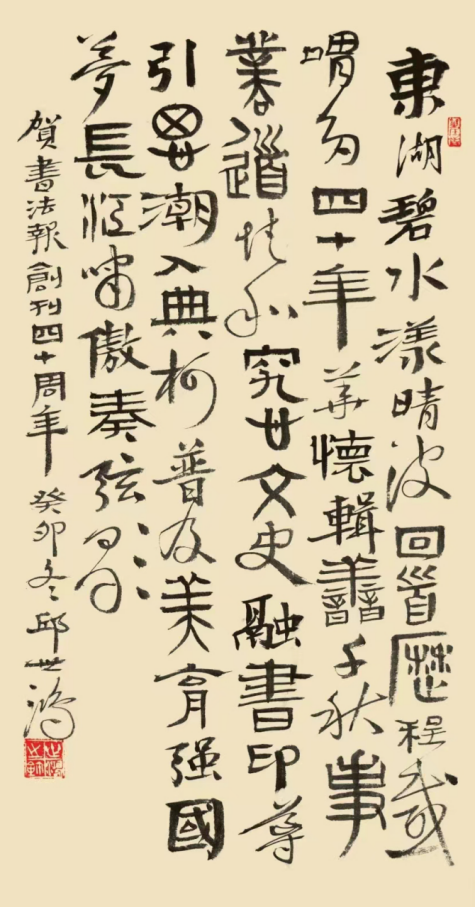 東湖碧水漾晴波回首歷程感
喟多四十年華懷輯譱千秋事
業道和究廿文史融書印導
引潮入典柯普及美育强國
夢長江嘯傲奏弦歌
賀書法報創刊四十周年 癸卯冬邱世鴻